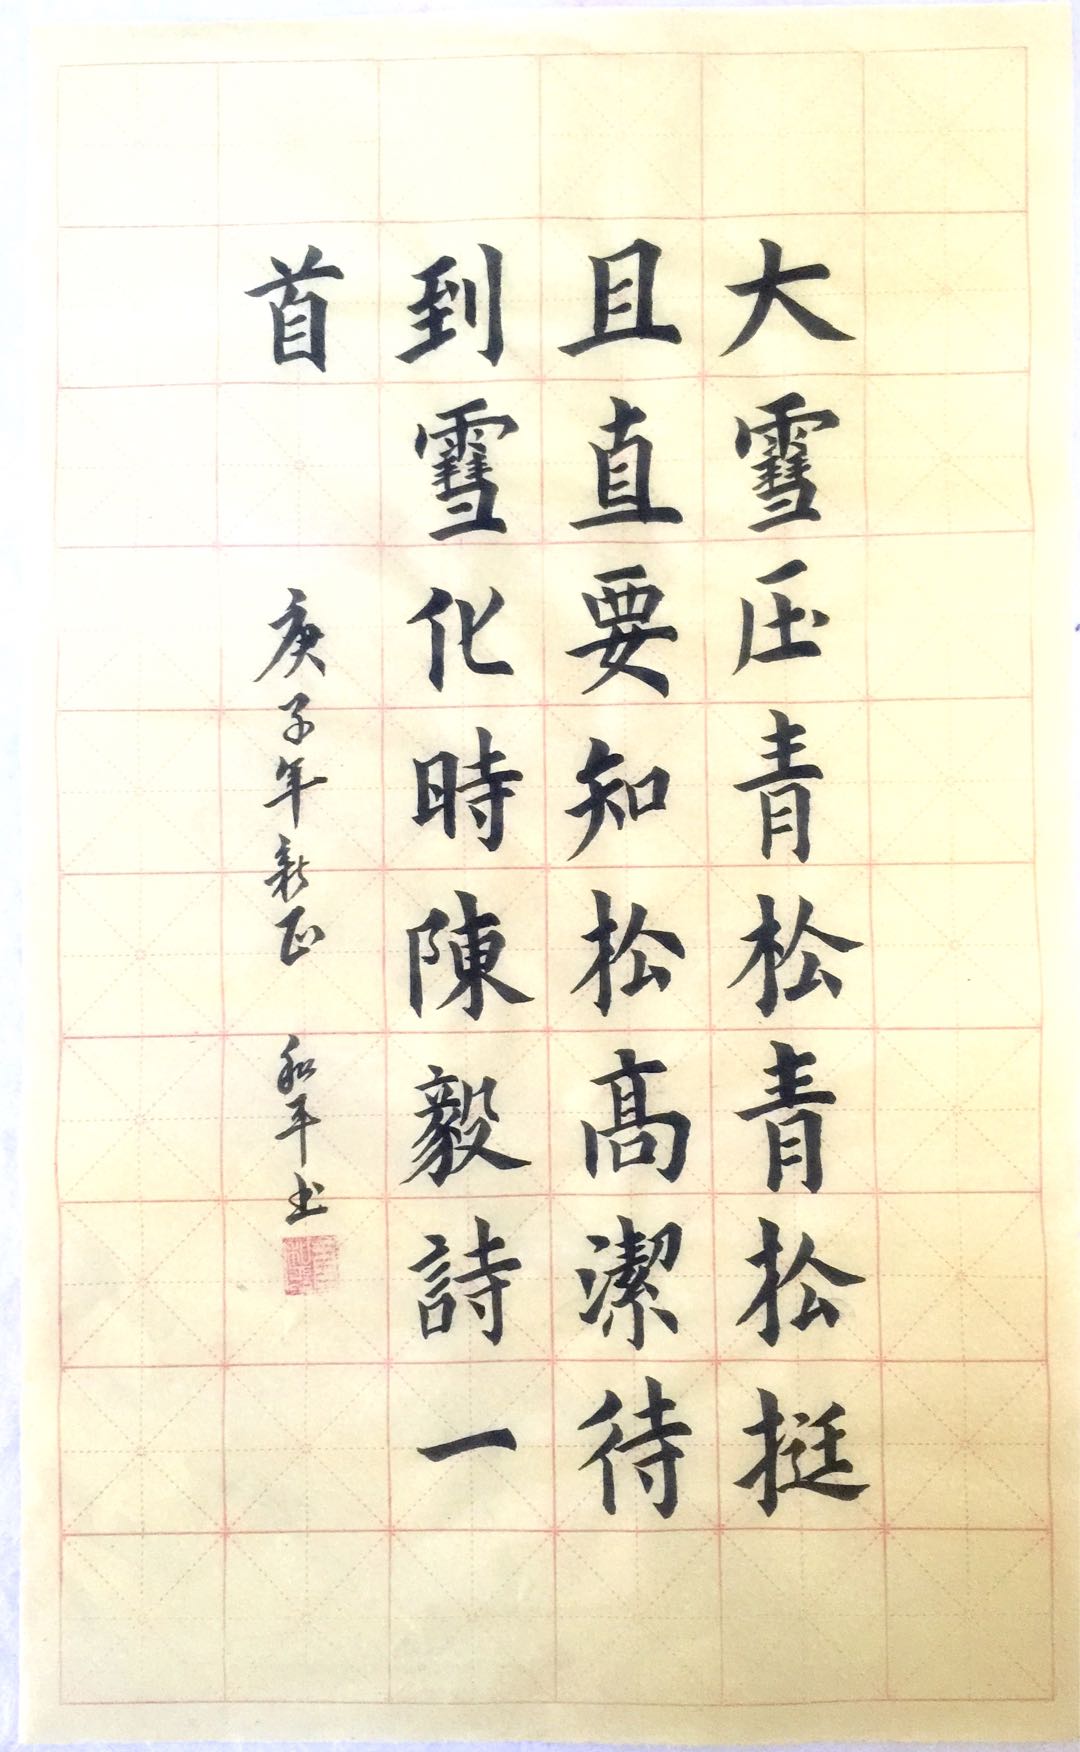 大雪压青松青松挺
且直要知松高潔待
到雪化時陳毅詩一
首
庚子年新正 和平书